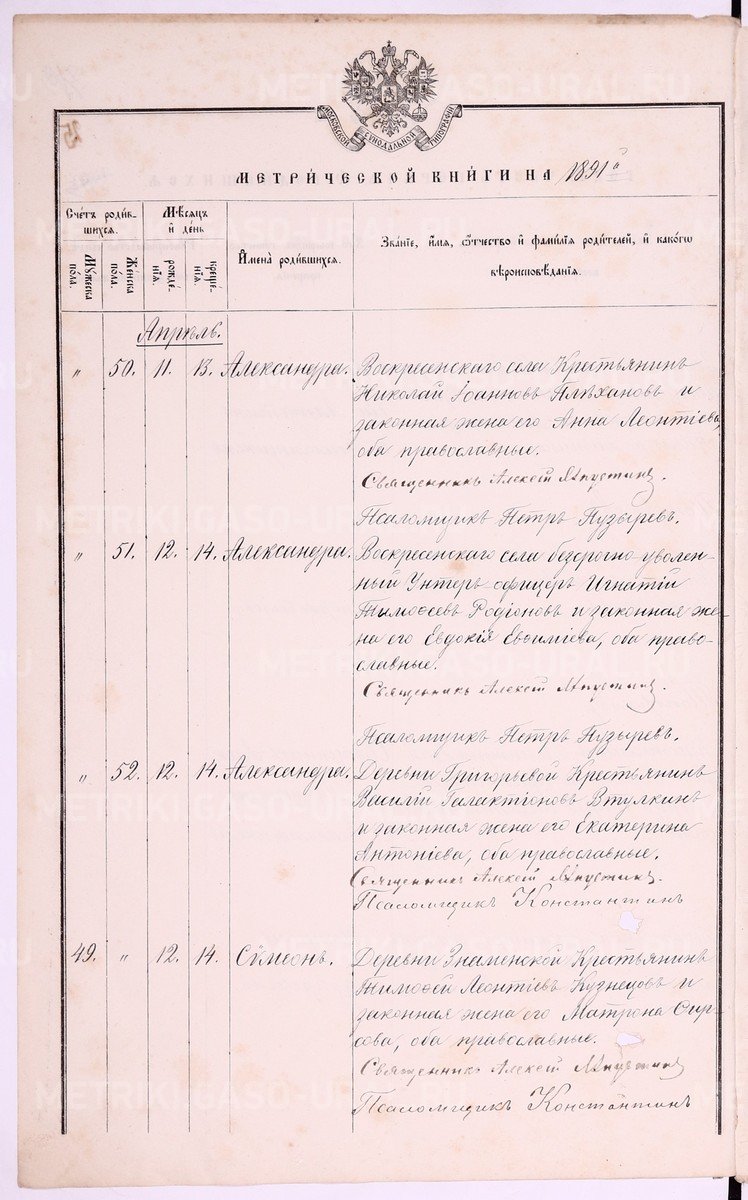 25
МОСКОВСКОЙ СУНОДАЛЬНОЙ ТИПОГРАФІИ
МЕТРИ́ЧЕСКОЙ КНИ́ГИ НА 1891 й
Сче́тъ роди́в-
шихся.
Мꙋжеска по́ла.
Же́нска по́ла.
Мѣ́сяцъ и҆ де́нь
рожде́-
нїя.
креще́-
нїя.
И҆мена̀ роди́вшихся.
Зва́нїе, и҆́мя, ѻ҆́тчество и҆ фами́лїя роди́телей, и҆ како́гѡ
вѣроисповѣ́данїя.
Апрѣль.
„ 50. 11. 13. Александра. Воскресенскаго села Крестьянинъ
Николай Іоанновъ Плѣхановъ и
законная жена его Анна Леонтіева,
оба православные.
Священникъ Алексій
Псаломщикъ Петръ Пузыревъ.
„ 51. 12. 14. Александра. Воскресенскаго села безсрочно-уволен-
ный Унтеръ офицеръ Игнатій
Тимоѳеевъ Родіоновъ и законная же-
на его Евдокія Евѳиміева, оба право-
славные.
Священникъ Алексій
Псаломщикъ Петръ Пузыревъ.
„ 52. 12. 14. Александра. Деревни Григорьевой Крестьянинъ
Василій Галактіоновъ Втулкинъ
и законная жена его Екатерина
Антоніева, оба православные.
Священникъ Алексій
Псаломщикъ Константинъ
49. „ 12. 14. Сѷмеонъ. Деревни Знаменской Крестьянинъ
Тимоѳей Леонтіевъ Кузнецовъ и
законная жена его Матрона Фир-
сова, оба православные.
Священникъ Алексій
Псаломщикъ Константинъ
METRIKI.GASO-URAL.RU